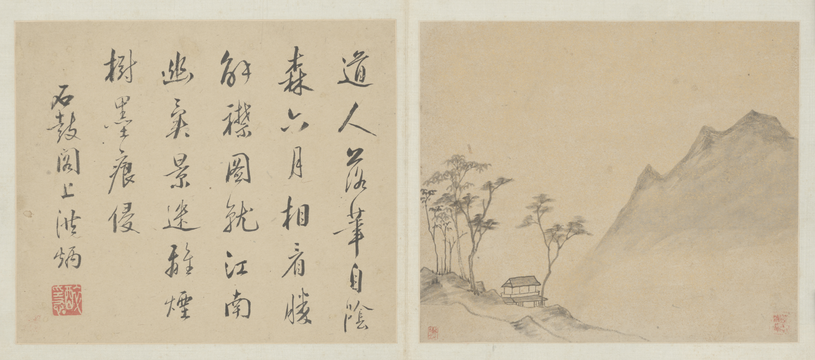 道人落筆自陰
森六月相看勝
解襟圖就江南
幽景迷離煙
樹墨痕侵
石鼓閣上炳